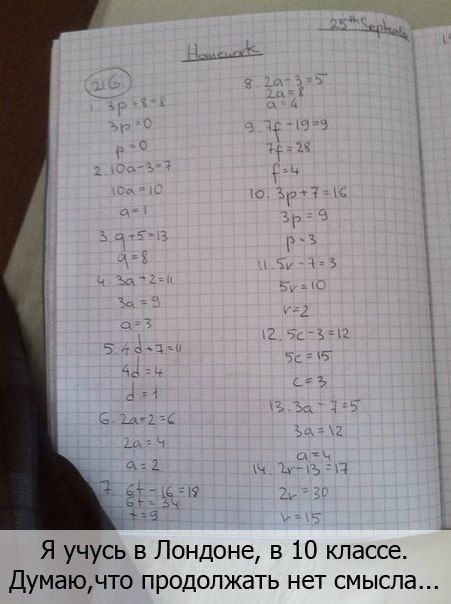 25th September
Homework
216.
1. 3p + 8 = 8
3p = 0
p = 0
2. 10a - 3 = 7
10a = 10
a = 1
3. q + 5 = 13
q = 8
4. 3a + 2 = 11
3a = 9
a = 3
5. 4d + 7 = 11
4d = 4
d = 1
6. 2a + 2 = 6
2a = 4
a = 2
7. 6t - 16 = 18
6t = 34
t = 9
8. 2a - 3 = 5
2a = 8
a = 4
9. 7f - 19 = 9
7f = 28
f = 4
10. 3p + 7 = 16
3p = 9
p = 3
11. 5r - 7 = 3
5r = 10
r = 2
12. 5c - 3 = 12
5c = 15
c = 3
13. 3a - 7 = 5
3a = 12
a = 4
14. 2r - 13 = 17
2r = 30
r = 15
Я учусь в Лондоне, в 10 классе.
Думаю,что продолжать нет смысла...